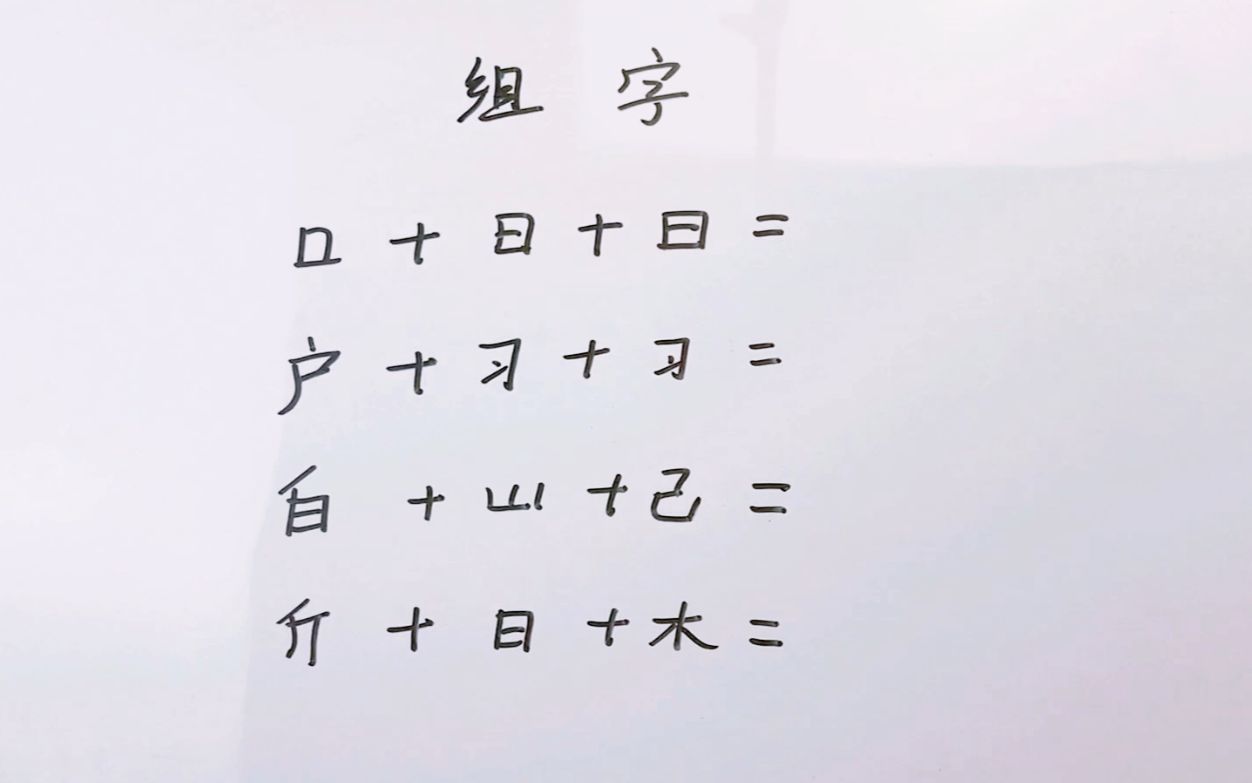 组 字
口 + 日 + 曰 =
户 + 习 + 习 =
白 + 山 + 己 =
斤 + 日 + 木 =